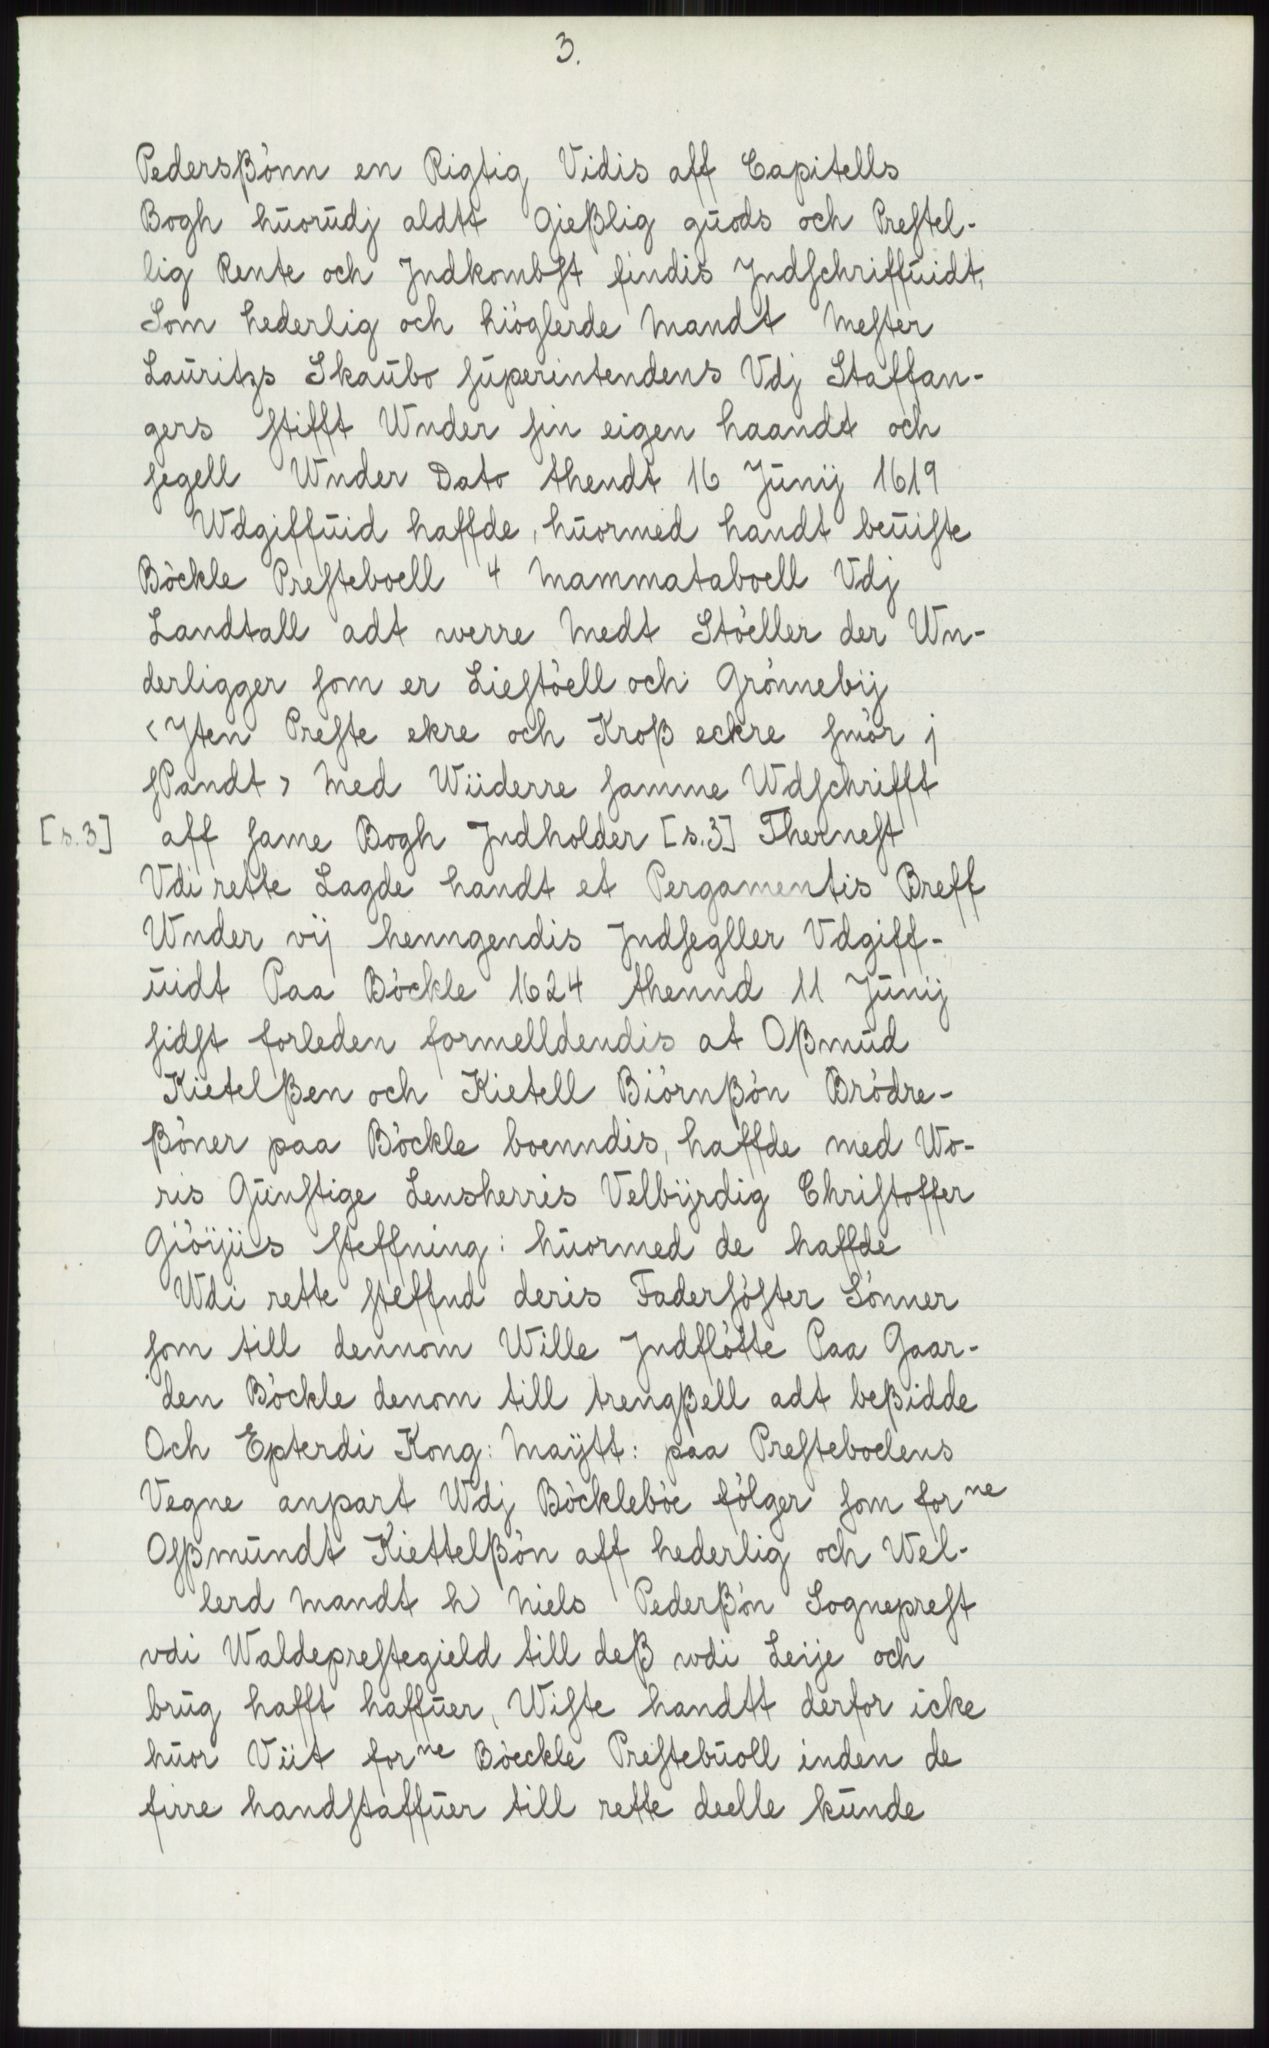 3.
Pedersßònn en Rigtig Vidis aff Capitells
Bogh huorudj aldtt Gießlig guods och Prestel-
lig Rente och Jndkombst findis Jndschriffuidt,
Som hederlig och hiöglerde Mandt Mester
Lauritzs Skaubo superintendens Vdj Staffan-
gers stifft Wnder sin eigen haandt och
segell Wnder Dato thendt 16 Junij 1619
Wdgiffuid haffde, huormed handt beuiste
Bòckle Presteboell 4 Mammataboell Vdj
Landtall adt werre Medt Stòeller der Wn-
derligger som er Liestòell och Grònnebij
<Jten Preste ekre och Kroß eckre smòr j
spandt> Med Wiiderre samme Wdschrifft
[s.3] aff same Bogh Jndholder [s.3] Thernest
Vdi rette Lagde handt et Pergamentis Breff
Wnder vij henngendis Jndsegller Vdgiff-
uidt Paa Bòckle 1624 thennd 11 Junij
sidst forleden formelldendis at Oßmud
Kietelßen och Kietell Biòrnßòn Bròdre-
ßòner paa Bòckle boenndis, haffde med Wo-
ris Gunstige Lensherris Velbÿrdig Christoffer
Giòÿiis steffning: huormed de haffde
Wdi rette steffnd deris Fadersòster Sònner
som till dennom Wille Jndflòtte Paa Gaar-
den Bòckle denom till trengßell adt beßidde
Och Epterdi Kong: Maÿtt: paa Presteboelens
Vegne anpart Wdj Bòcklebòe fòlger som forne
Osßmundt Kiettelßòn aff hederlig och Wel-
lerd Mandt h Niels Pederßòn Sogneprest
vdi Waldeprestegield till deß wdi Leije och
brug hafft haffuer, Wiste handtt derfor icke
huor Viit forne Bòeckle Prestebuoll inden de
firre handstaffuer till rette deelle kunde